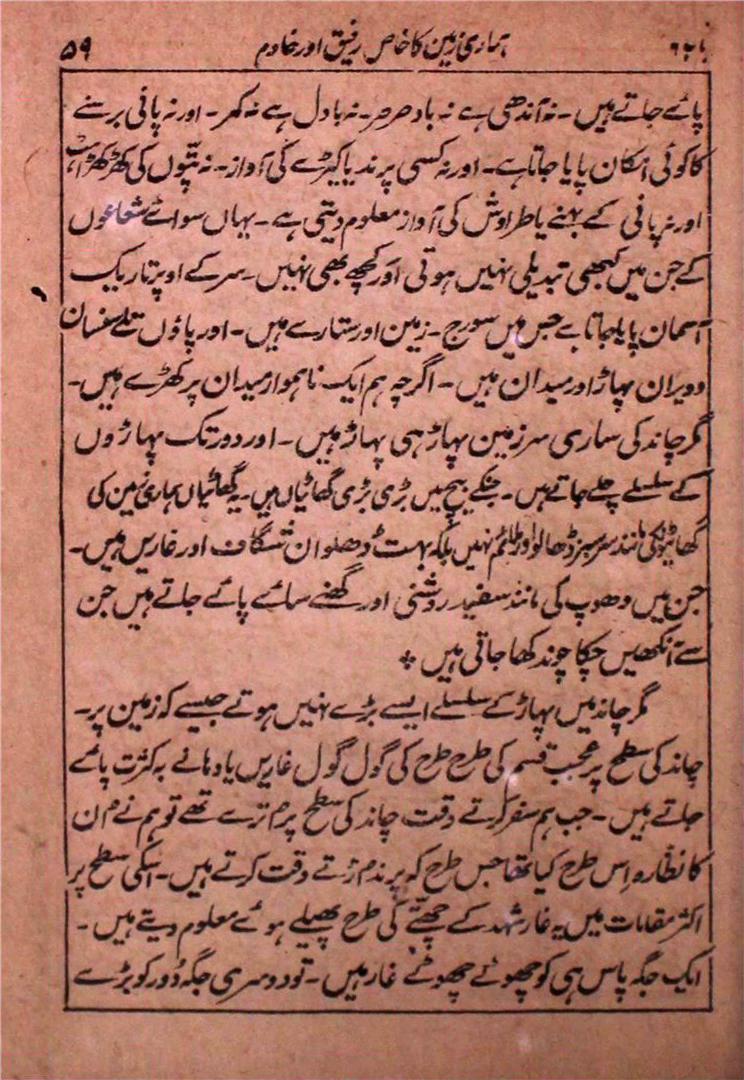 باب ۶ ہماری زمین کا خاص رفیق اور خادم ۵۹
پائے جاتے ہیں۔ نہ آندھی ہے نہ باد صرصر۔ نہ بادل ہے نہ کہر۔ اور نہ پانی برسنے
کا کوئی امکان پایا جاتا ہے۔ اور نہ کسی پرند یا کیڑے کی آواز۔ نہ پتّوں کی کھڑکھڑاہٹ
اور نہ پانی کے بہنے یا طراوش کی آواز معلوم دیتی ہے۔ یہاں سوائے شعاعوں
کے جن میں کبھی تبدیلی نہیں ہوتی اَور کچھ بھی نہیں۔ سر کے اوپر تاریک
آسمان پایا جاتا ہے جس میں سورج۔ زمین اور ستارے ہیں۔ اور پاؤں تلے سنسان
و ویران پہاڑ اور میدان ہیں۔ اگرچہ ہم ایک ناہموار میدان پر کھڑے ہیں۔
مگر چاند کی ساری سرزمین پہاڑ ہی پہاڑ ہیں۔ اور دور تک پہاڑوں
کے سلسلے چلے جاتے ہیں۔ جنکے بیچ میں بڑی بڑی گھاٹیاں ہیں۔ یہ گھاٹیاں ہماری زمین کی
گھاٹیوں کی مانند سرسبز ڈھالو اور ملائم نہیں بلکہ بہت ڈھلوان شگاف اور غاریں ہیں۔
جن میں دھوپ کی مانند سفید روشنی اور گھنے سائے پائے جاتے ہیں جن
سے آنکھیں چکا چوند کھا جاتی ہیں +
مگر چاند میں پہاڑ کے سلسلے ایسے بڑے نہیں ہوتے جیسے کہ زمین پر۔
چاند کی سطح پر عجب قسم کی طرح طرح کی گول گول غاریں یا دہانے بہ کثرت پائے
جاتے ہیں۔ جب ہم سفر کرتے وقت چاند کی سطح پر اُترے تھے تو ہم نے اُن
کا نظارہ اِس طرح کیا تھا جس طرح کہ پرند اُڑتے وقت کرتے ہیں۔ اسکی سطح پر
اکثر مقامات میں یہ غار شہد کے چھتّے کی طرح پھیلے ہوئے معلوم دیتے ہیں۔
ایک جگہ پاس ہی کو چھوٹے چھوٹے غار ہیں۔ تو دوسری جگہ دُور کو بڑے